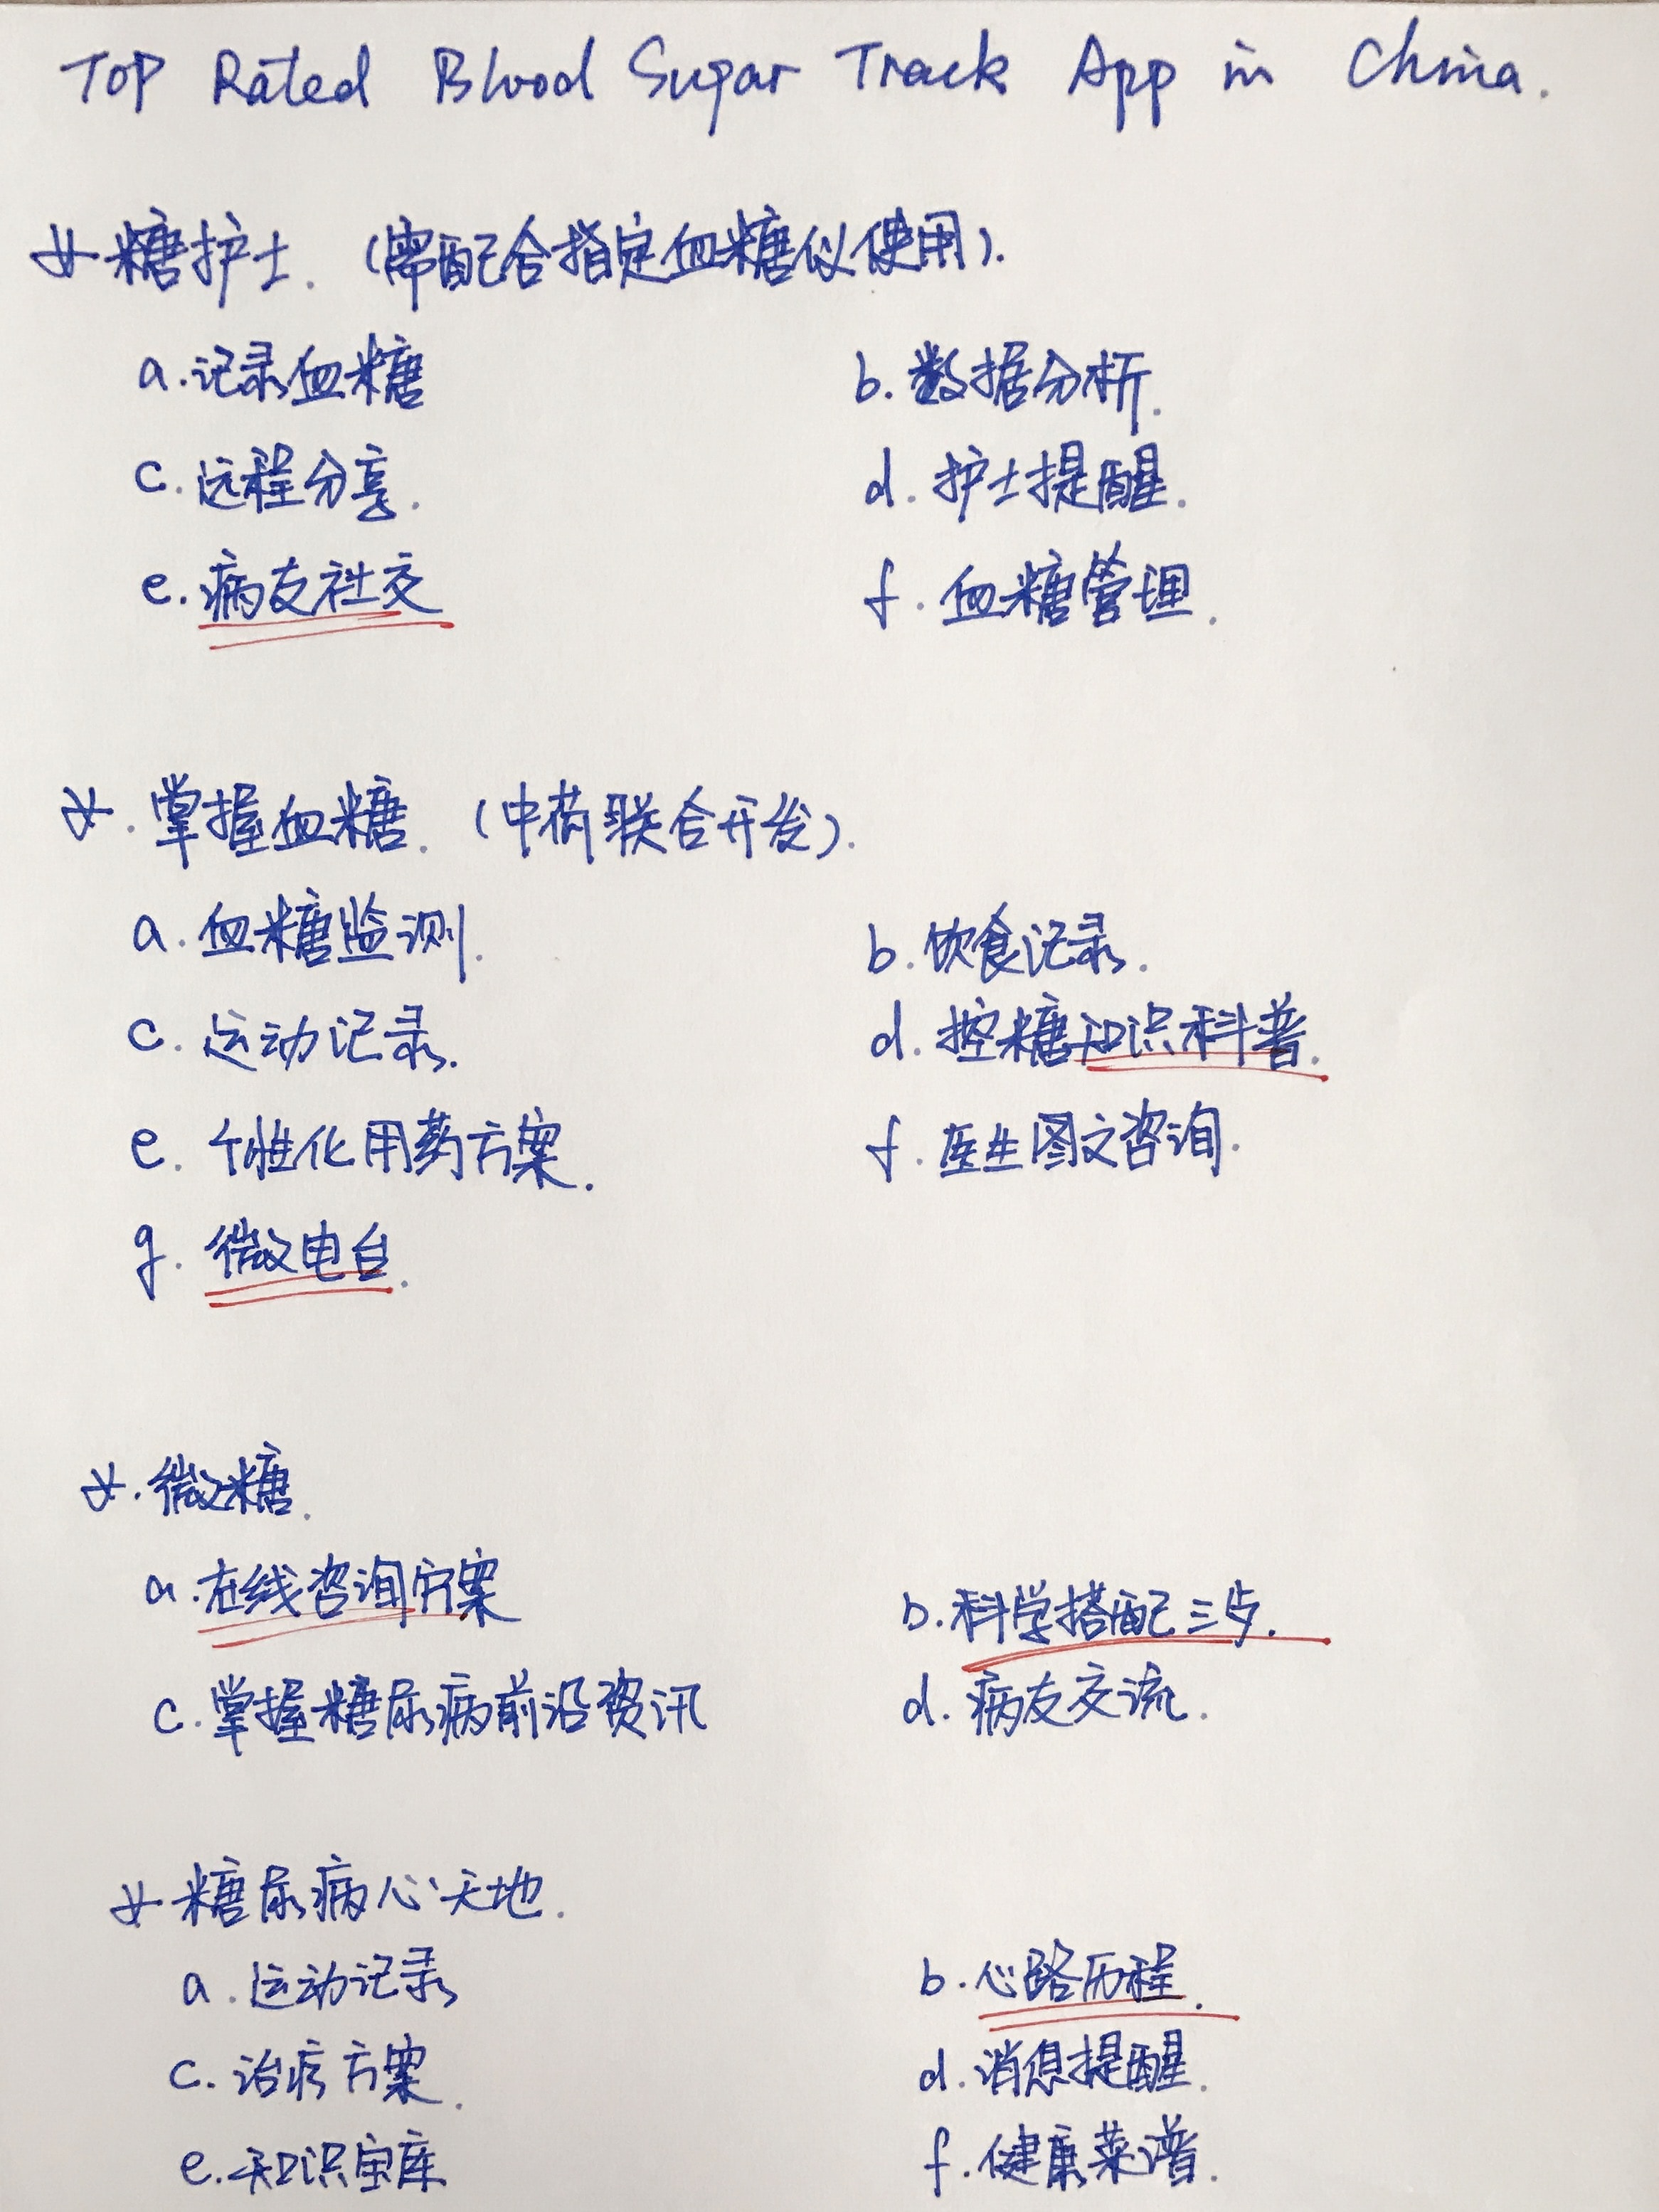 Top Rated Blood Sugar Track App in China.
☆ 糖护士. (需配合指定血糖仪使用).
a. 记录血糖 b. 数据分析.
c. 远程分享. d. 护士提醒.
e. 病友社交 f. 血糖管理.
☆. 掌握血糖. (中荷联合开发).
a. 血糖监测. b. 饮食记录.
c. 运动记录. d. 控糖知识科普.
e. 个性化用药方案. f. 医生图文咨询.
g. 微电台.
☆. 微糖.
a. 在线咨询方案 b. 科学搭配三步.
c. 掌握糖尿病前沿资讯 d. 病友交流.
☆ 糖尿病心天地.
a. 运动记录 b. 心路历程.
c. 治疗方案. d. 消息提醒.
e. 知识宝库 f. 健康菜谱.